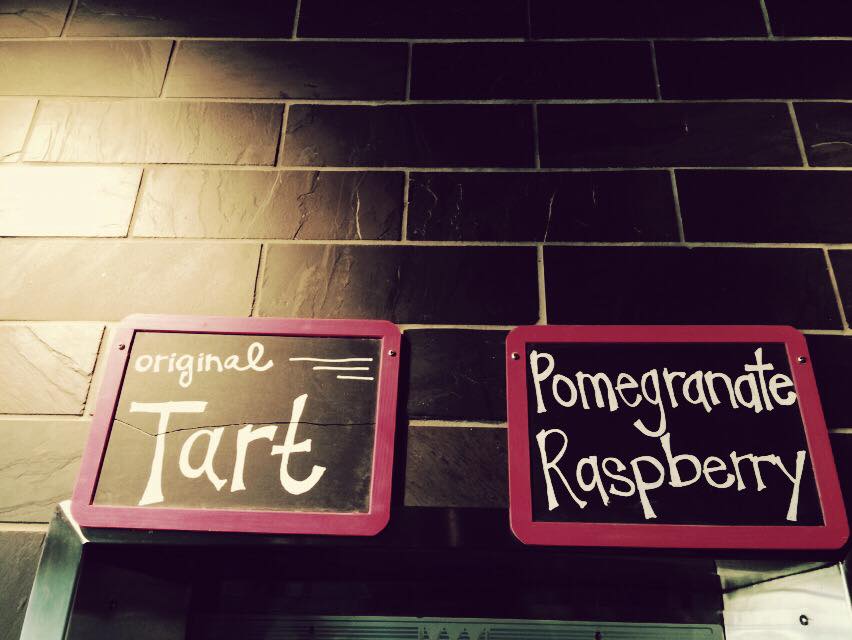 original
Tart
Pomegranate
Raspberry